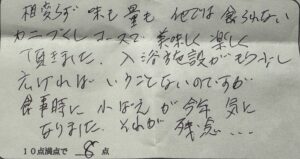 相変らず 味も量も 他では食られない
カニづくしコースで 美味しく 楽しく
頂きました. 入浴施設がもう少し
広ければ いうことないのですが
食事時に 小ばえが 今年 気に
なりました. それが 残念...
10点満点で 8 点